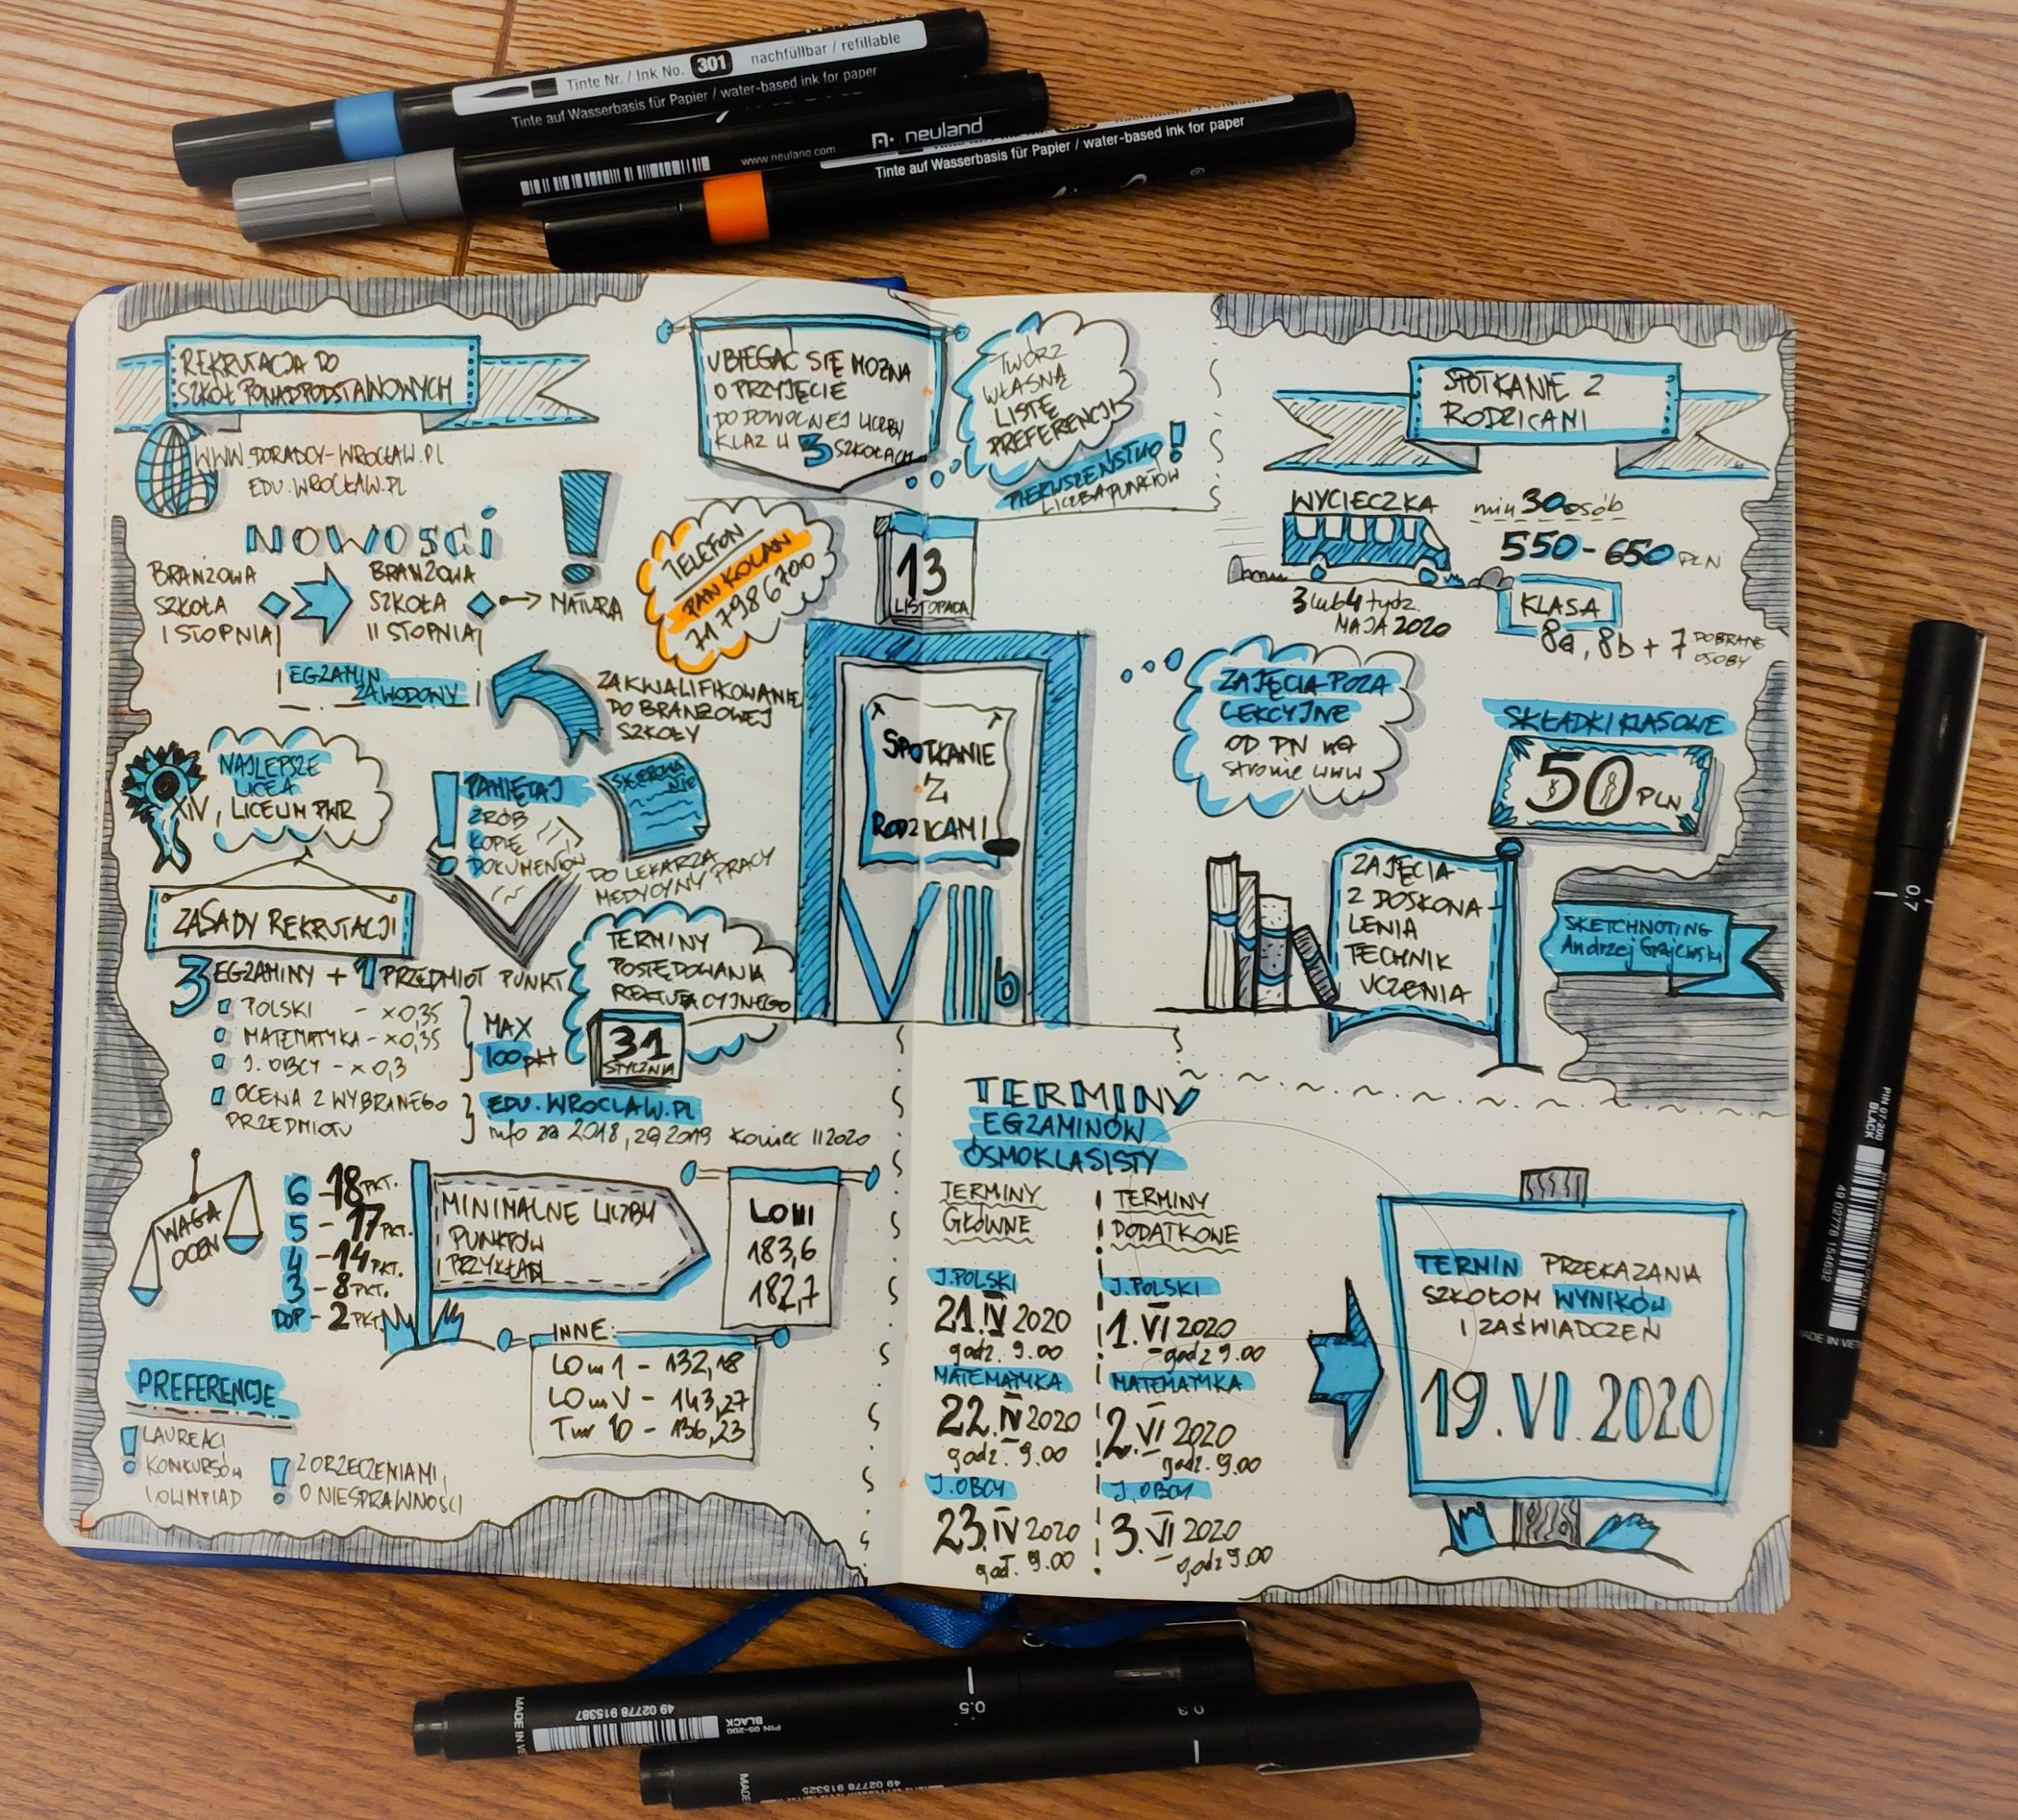 Tinte Nr. / Ink No. 301 nachfüllbar / refillable
Tinte auf Wasserbasis für Papier / water-based ink for paper
www.neuland.com neuland
Tinte auf Wasserbasis für Papier / water-based ink for paper
REKRUTACJA DO
SZKÓŁ PONADPODSTAWOWYCH
WWW.DORADCY-WROCŁAW.PL
EDU.WROCŁAW.PL
NOWOŚCI
BRANŻOWA
SZKOŁA
I STOPNIA
BRANŻOWA
SZKOŁA
II STOPNIA
MATURA
EGZAMIN
ZAWODOWY
ZAKWALIFIKOWANIE
DO BRANŻOWEJ
SZKOŁY
TELEFON
PAN KOLAN
71 798 6700
NAJLEPSZE
LICEA
XIV, LICEUM PWR
PAMIĘTAJ
ZRÓB
KOPIĘ
DOKUMENTÓW
SKIEROWA
NIE
DO LEKARZA
MEDYCYNY PRACY
ZASADY REKRUTACJI
3 EGZAMINY + 1 PRZEDMIOT PUNKT
POLSKI - x0,35
MATEMATYKA - x0,35
J. OBCY - x0,3
MAX
100pkt
OCENA Z WYBRANEGO
PRZEDMIOTU
TERMINY
POSTĘPOWANIA
REKRUTACYJNEGO
31
STYCZNIA
EDU.WROCLAW.PL
info za 2018, za 2019 koniec II 2020
WAGA
OCEN
6 - 18 PKT.
5 - 17 PKT.
4 - 14 PKT.
3 - 8 PKT.
DOP - 2 PKT.
MINIMALNE LICZBY
PUNKTÓW
PRZYKŁAD
LO III
183,6
182,7
INNE:
LO nr 1 - 132,18
LO nr V - 143,27
T nr 10 - 136,23
PREFERENCJE
LAUREACI
KONKURSÓW
I OLIMPIAD
Z ORZECZENIAMI
O NIESPRAWNOŚCI
UBIEGAĆ SIĘ MOŻNA
O PRZYJĘCIE
DO DOWOLNEJ LICZBY
KLAZ W 3 SZKOŁACH
TWÓRZ
WŁASNĄ
LISTĘ
PREFERENCJI
PIERWSZEŃSTWO!
LICZBA PUNKTÓW
13
LISTOPADA
SPOTKANIE
Z
RODZICAMI
VIII b
SPOTKANIE Z
RODZICAMI
WYCIECZKA
min 30 osób
550 - 650 PLN
3 lub 4 tydz.
MAJA 2020
KLASA
8a, 8b + 7 DOBRANE
OSOBY
ZAJĘCIA POZA
LEKCYJNE
OD PN na
stronie www
SKŁADKI KLASOWE
50 PLN
ZAJĘCIA
Z DOSKONA-
LENIA
TECHNIK
UCZENIA
SKETCHNOTING
Andrzej Grajewski
TERMINY
EGZAMINÓW
ÓSMOKLASISTY
TERMINY
GŁÓWNE
J.POLSKI
21.IV 2020
godz. 9.00
MATEMATYKA
22.IV 2020
godz. 9.00
J.OBCY
23.IV 2020
god. 9.00
TERMINY
DODATKOWE
J.POLSKI
1.VI 2020
godz 9.00
MATEMATYKA
2.VI 2020
godz. 9.00
J.OBCY
3.VI 2020
godz 9.00
TERMIN PRZEKAZANIA
SZKOŁOM WYNIKÓW
I ZAŚWIADCZEŃ
19.VI.2020
0.7
PIN 07-200
BLACK
49 02778 154632
MADE IN VIET
0.5
PIN 05-200
BLACK
49 02778 915387
MADE IN VIE
0.3
49 02778 915325
MADE